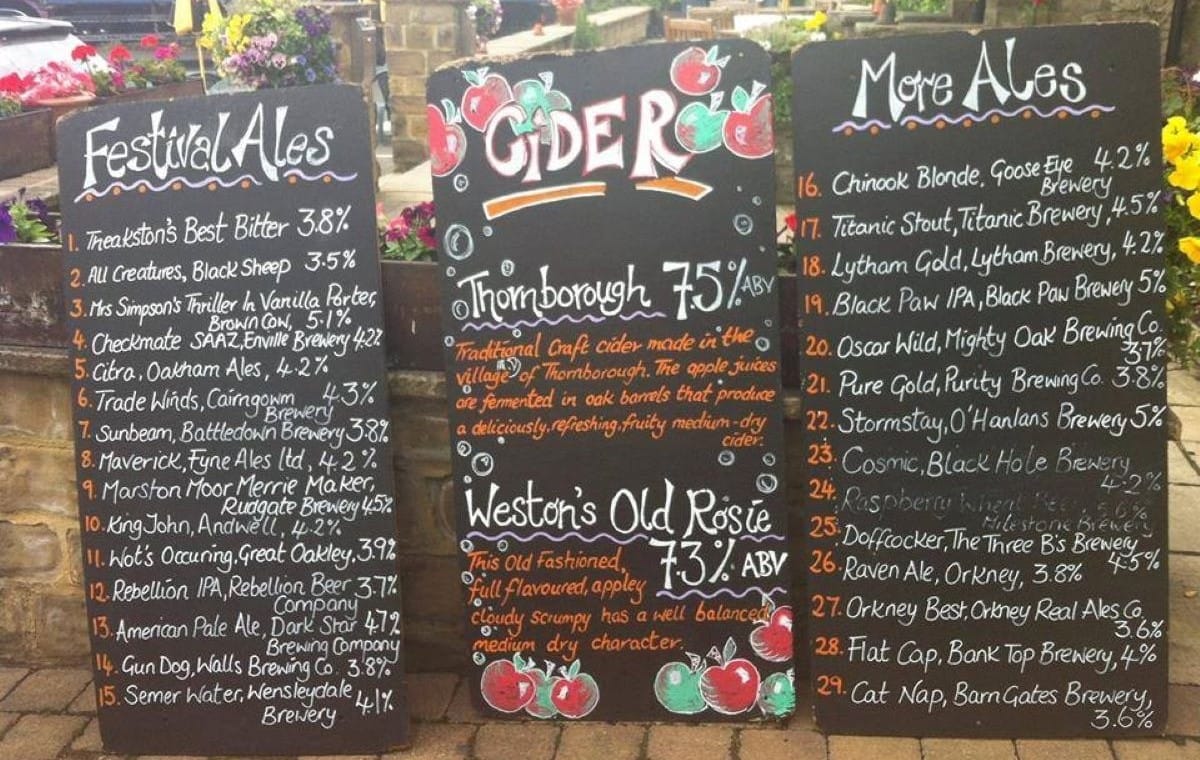 Festival Ales
1. Theakston's Best Bitter 3.8%
2. All Creatures, Black Sheep 3.5%
3. Mrs Simpson's Thriller In Vanilla Porter,
Brown Cow, 5.1%
4. Checkmate SAAZ, Enville Brewery 4.2%
5. Citra, Oakham Ales, 4.2%
6. Trade Winds, Cairngowm 4.3%
Brewery
7. Sunbeam, Battledown Brewery 3.8%
8. Maverick, Fyne Ales Ltd, 4.2%
9. Marston Moor Merrie Maker,
Rudgate Brewery 4.5%
10. King John, Andwell, 4.2%
11. Wot's Occuring, Great Oakley, 3.9%
12. Rebellion IPA, Rebellion Beer 3.7%
Company
13. American Pale Ale, Dark Star 4.7%
Brewing Company
14. Gun Dog, Walls Brewing Co. 3.8%
15. Semer Water, Wensleydale 4.1%
Brewery
CiDER
Thornborough 7.5% ABV
Traditional Craft cider made in the
village of Thornborough. The apple juices
are fermented in oak barrels that produce
a deliciously, refreshing, fruity medium-dry
cider.
Weston's Old Rosie
7.3% ABV
This Old Fashioned,
full flavoured, appley
cloudy scrumpy has a well balanced
medium dry character.
More Ales
16. Chinook Blonde, Goose Eye 4.2%
Brewery
17. Titanic Stout, Titanic Brewery, 4.5%
18. Lytham Gold, Lytham Brewery, 4.2%
19. Black Paw IPA, Black Paw Brewery 5%
20. Oscar Wild, Mighty Oak Brewing Co.
3.7%
21. Pure Gold, Purity Brewing Co. 3.8%
22. Stormstay, O'Hanlans Brewery 5%
23. Cosmic, Black Hole Brewery
4.2%
24. Raspberry Wheat Beer
Milestone Brewery
25. Doffcocker, The Three B's Brewery
4.5%
26. Raven Ale, Orkney, 3.8%
27. Orkney Best, Orkney Real Ales Co,
3.6%
28. Flat Cap, Bank Top Brewery, 4%
29. Cat Nap, Barn Gates Brewery,
3.6%